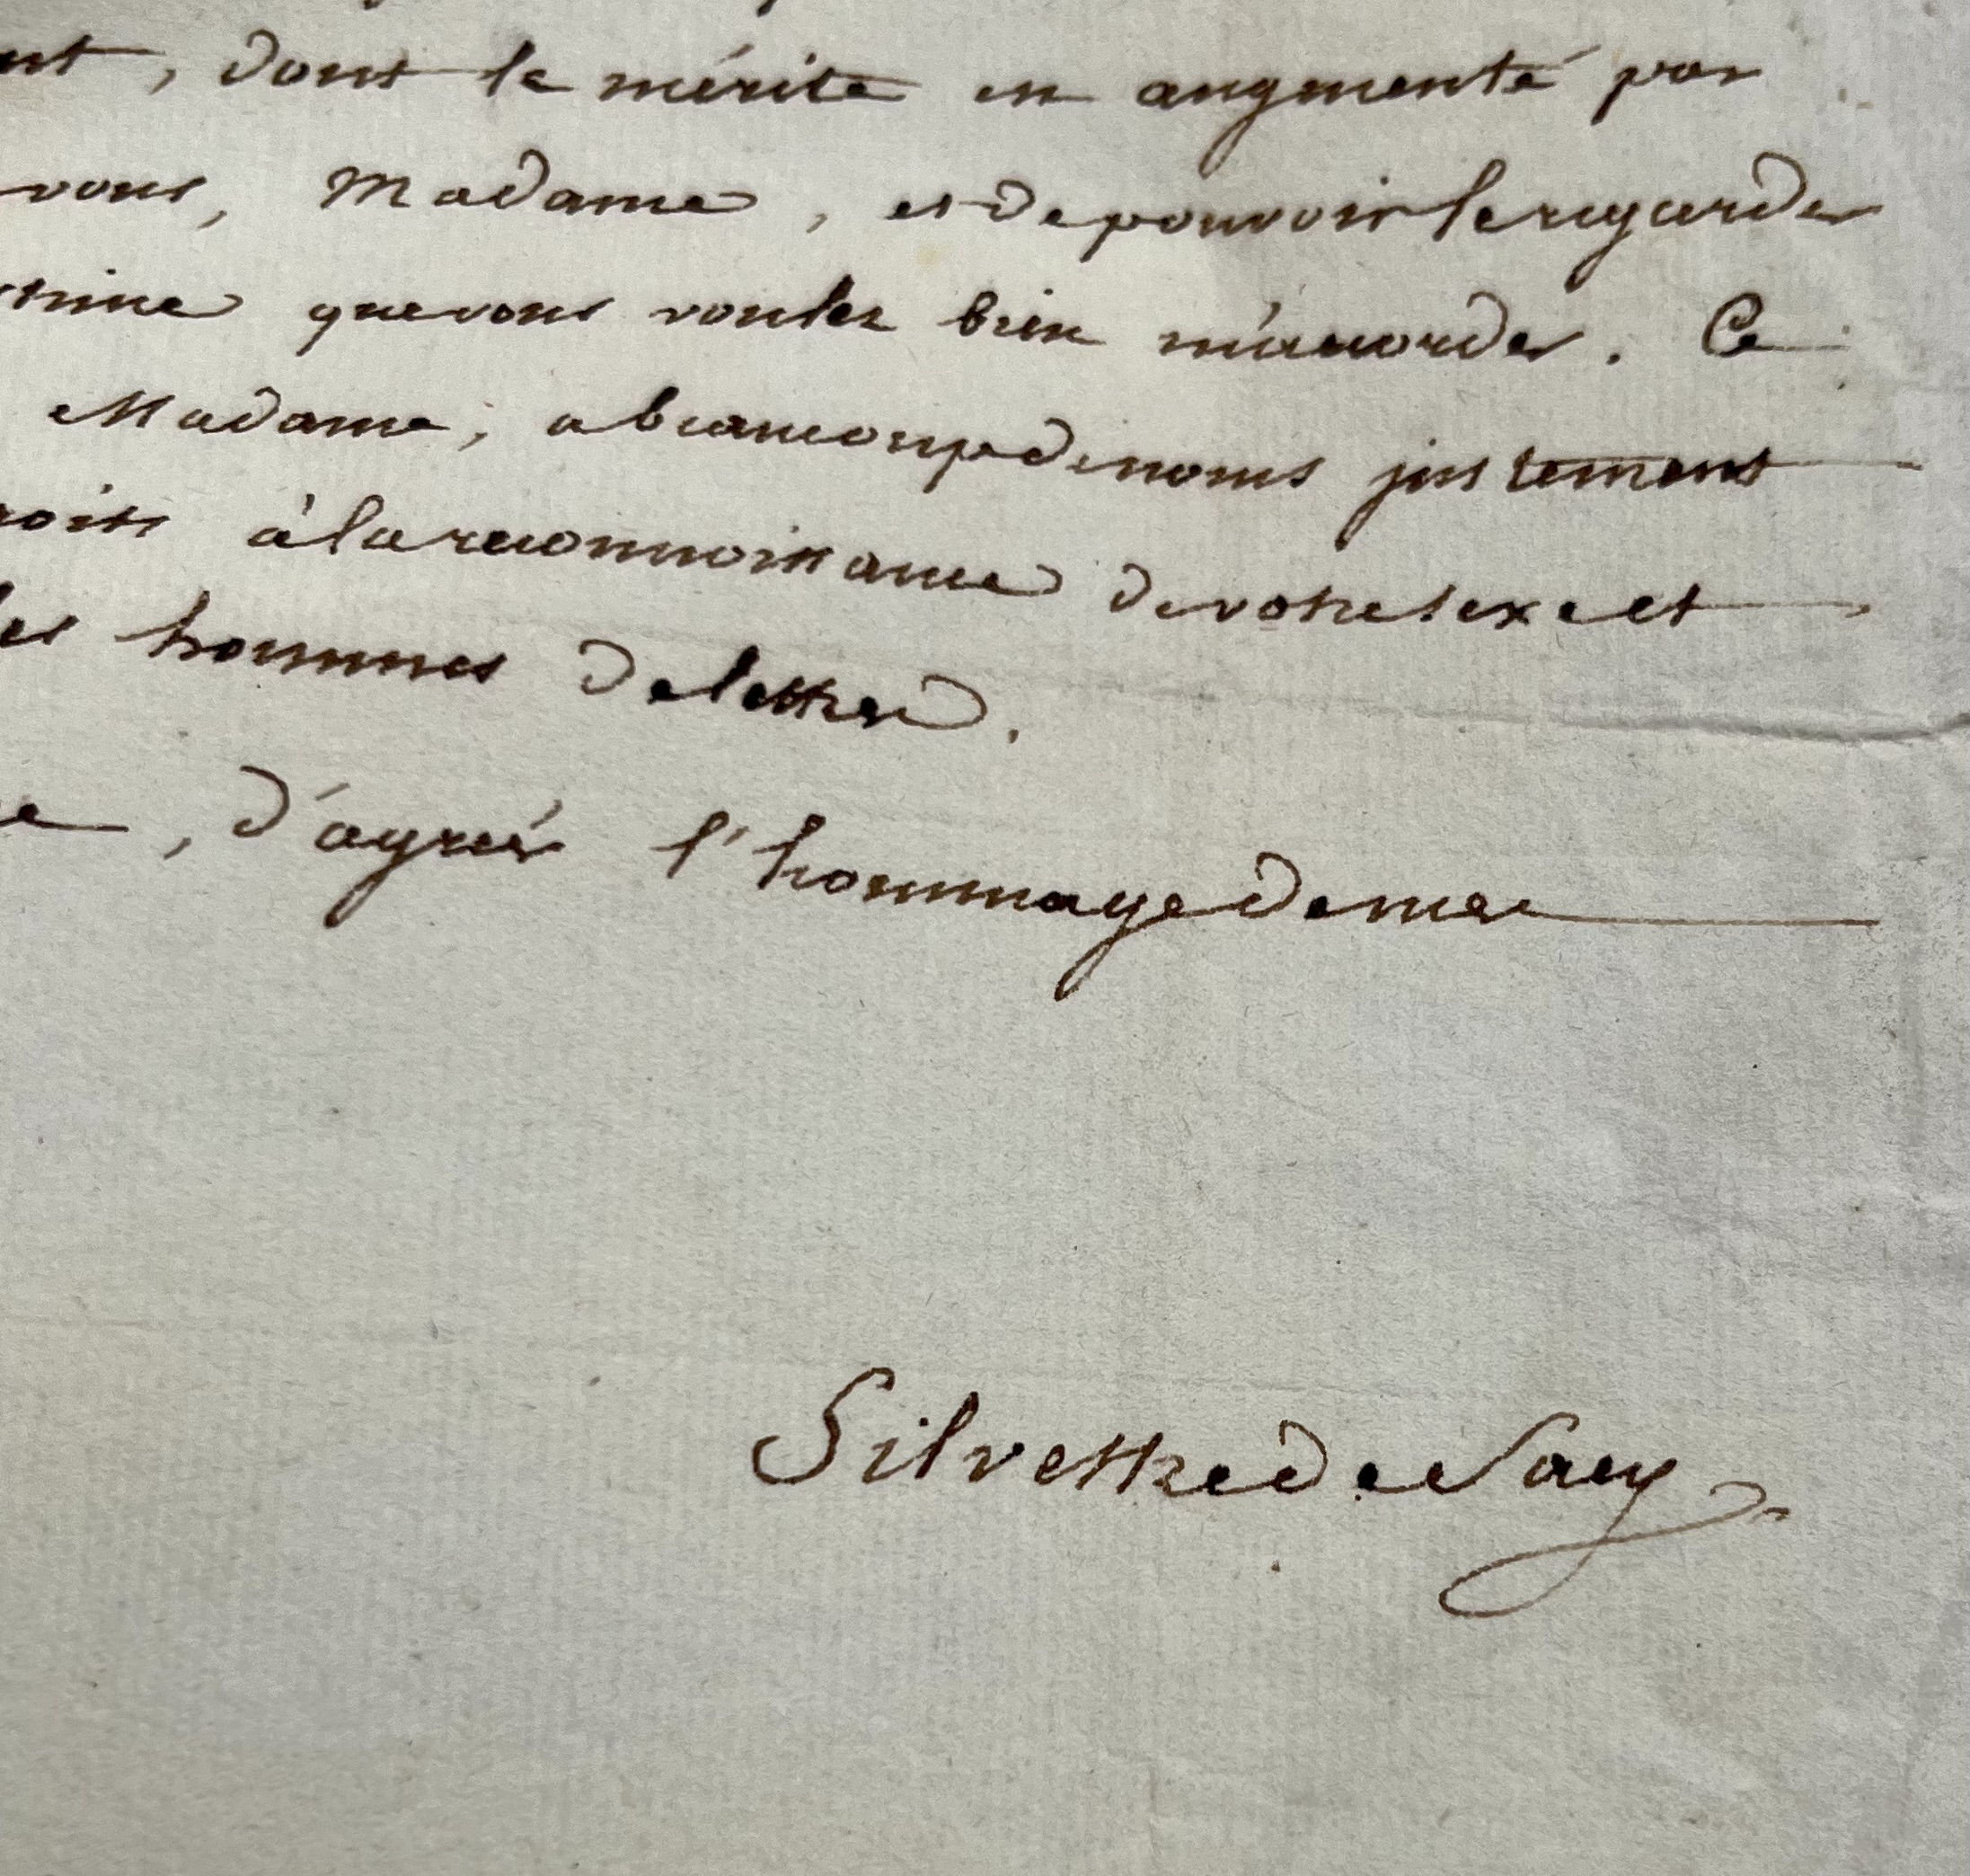 nt, dont le mérite en augmenté par
vous, Madame, et de pouvoir le regarder
time que vous voulez bien m'accorder. Ce
Madame, a beaucoup de noms justement
roits à la reconnoissance de votre sexe et
les hommes de lettres.
e, d'agréer l'hommage de mes
Silvestre de Sacy